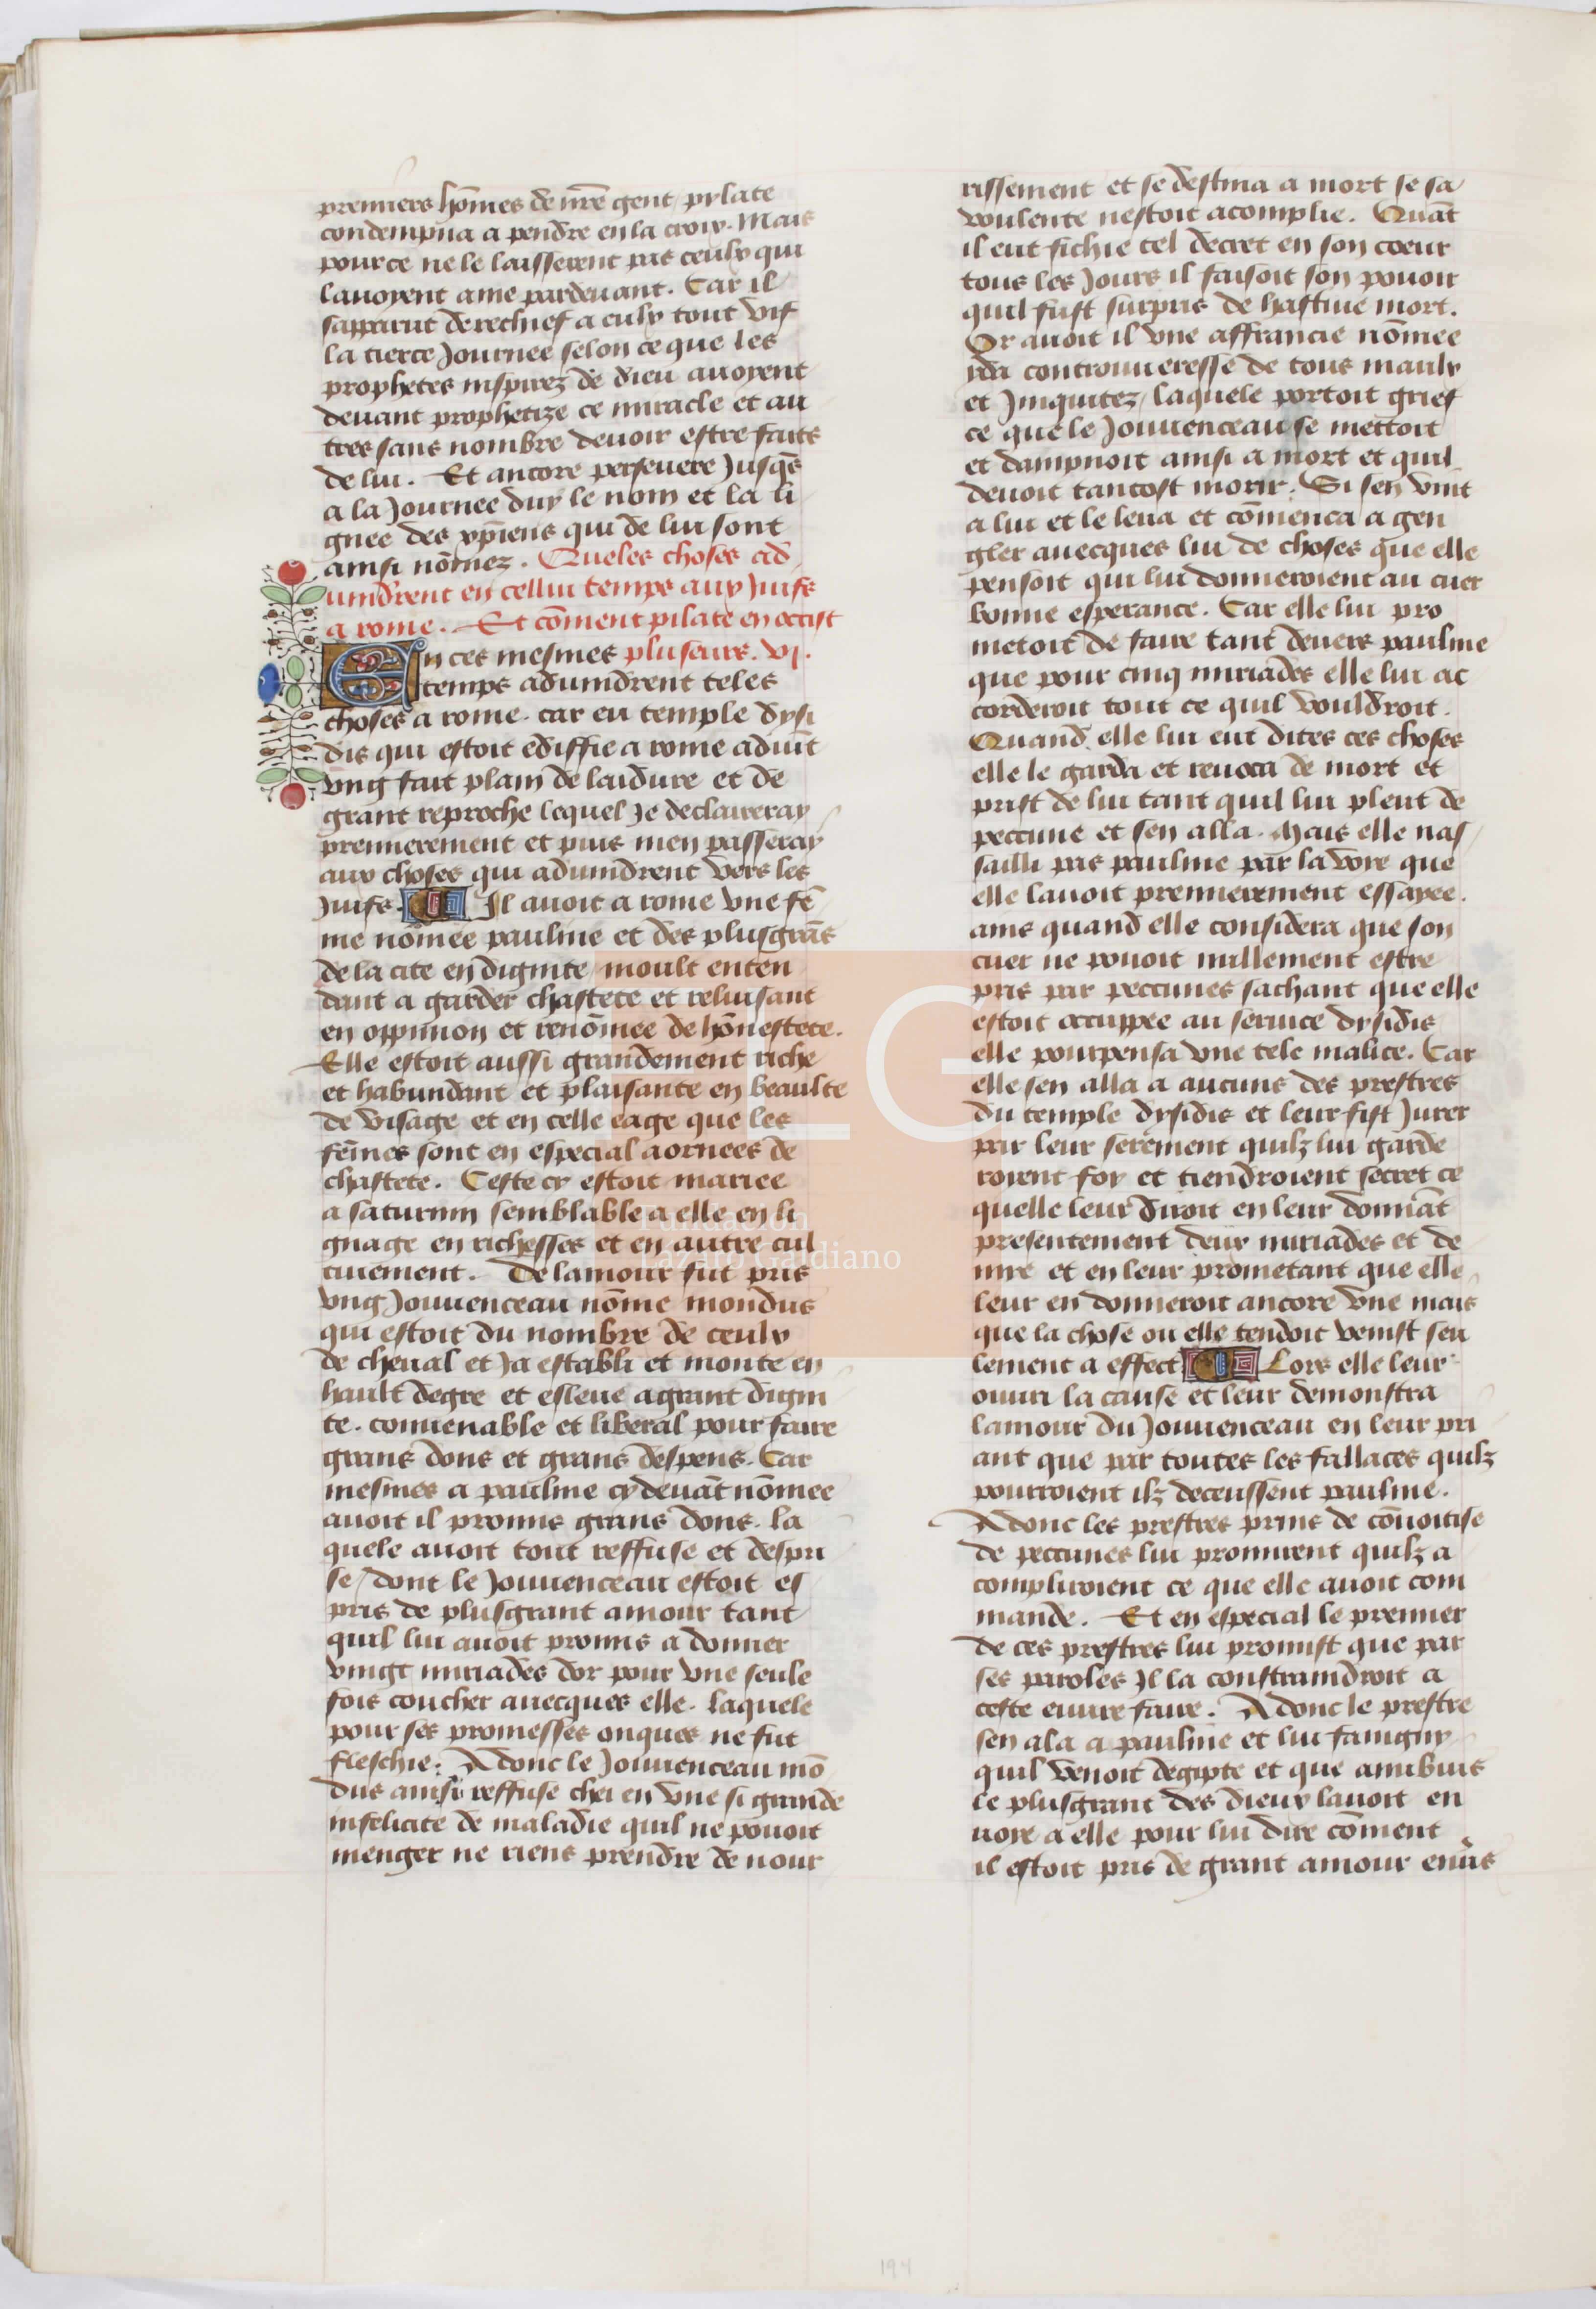 premiers hõmes de nr̃e gent / pylate
condempna a pendre en la croix. Mais
pource ne le laisserent pas ceulx qui
lauoyent ame pardeuant. Car il
sapparut derechief a eulx tout vif
la tierce Journee selon ce que les
prophetes inspirez de dieu auoyent
deuant prophetize ce miracle et au
tres sans nombre deuoir estre faits
de lui. Et ancore perseuere Jusq̃s
a la Journee duy le nom et la li
gnee des xp̃iens qui de lui sont
ainsi nõmez. Queles choses ad
uindrent en cellui temps aux Juifs
a rome. Et cõment pilate en occist
En ces mesmes pluseurs. vj.
temps aduindrent teles
choses a rome. car en temple dysi
dis qui estoit ediffie a rome aduĩt
vng fait plain de laidure et de
grant reproche lequel Je declaireray
premierement et puis men passeray
aux choses qui aduindrent vers les
Juifs. Il auoit a rome vne fẽ
me nõmee pauline et des plusgrãs
de la cite en dignite / moult enten
dant a garder chastete et reluisant
en oppinion et renõmee de hõnestete.
Elle estoit aussi grandement riche
et habundant et plaisante en beaulte
de visage et en celle eage que les
fẽmes sont en especial aornees de
chastete. Ceste cy estoit mariee
a saturnin semblable a elle en li
gnage en richesses et en autre cul
tiuement. De lamour fut pris
vng Jouuenceau nõme mondus
qui estoit du nombre de ceulx
de cheual et Ja establi et monte en
hault degre et esleue a grant digni
te. conuenable et liberal pour faire
grans dons et grans despens. Car
mesmes a pauline cy deuãt nõmee
auoit il promis grans dons. la
quele auoit tout reffuse et despri
se / dont le Jouuenceau estoit es
pris de plusgrant amour tant
quil lui auoit promis a donner
vingt miriades dor pour vne seule
fois coucher auecques elle. laquele
pour ses promesses onques ne fut
fleschie. Adonc le Jouuenceau mõ
dus ainsi reffuse chei en vne si grande
infelicite de maladie quil ne pouoit
menger ne riens prendre de nour
rissement et se destina a mort se sa
voulente nestoit acomplie. Quãt
il eut fichie tel decret en son coeur
tous les Jours il faisoit son pouoir
quil fust surpris de hastiue mort.
Or auoit il vne affrancie nõmee
yda controuueresse de tous maulx
et Jniquitez / laquele portoit grief
ce que le Jouuenceau se mettoit
et dampnoit ainsi a mort et quil
deuoit tantost morir. Si sen vint
a lui et le leua et cõmenca a gen
gler auecques lui de choses que elle
pensoit qui lui donneroient au cuer
bonne esperance. Car elle lui pro
metoit de faire tant deuers pauline
que pour cinq miriades elle lui ac
corderoit tout ce quil vouldroit.
Quand elle lui eut dites ces choses
elle le garda et reuoca de mort et
prist de lui tant quil lui pleut de
peccune et sen alla. Mais elle nas
sailli pas pauline par la voye que
elle lauoit premierement essayee.
ains quand elle considera que son
cuer ne pouoit nullement estre
pris par peccunes sachant que elle
estoit occuppee au seruice dysidis
elle pourpensa vne tele malice. Car
elle sen alla a aucuns des prestres
du temple dysidis et leur fist Jurer
par leur serement quilz lui garde
roient foy et tiendroient secret ce
quelle leur diroit en leur donnãt
presentement deux miriades et de
mye et en leur prometant que elle
leur en donneroit ancore vne mais
que la chose ou elle tendoit venist seu
lement a effect. Lors elle leur
ouuri la cause et leur demonstra
lamour du Jouuenceau en leur pri
ant que par toutes les fallaces quilz
pourroient ilz deceussent pauline.
Adonc les prestres prins de cõuoitise
de peccunes lui promirent quilz a
compliroient ce que elle auoit com
mande. Et en especial le premier
de ces prestres lui promist que par
ses paroles Il la constraindroit a
ceste euure faire. Adonc le prestre
sen ala a pauline et lui faingny
quil venoit degipte et que anubius
le plusgrant des dieux lauoit en
uoye a elle pour lui dire cõment
il estoit pris de grant amour enũs